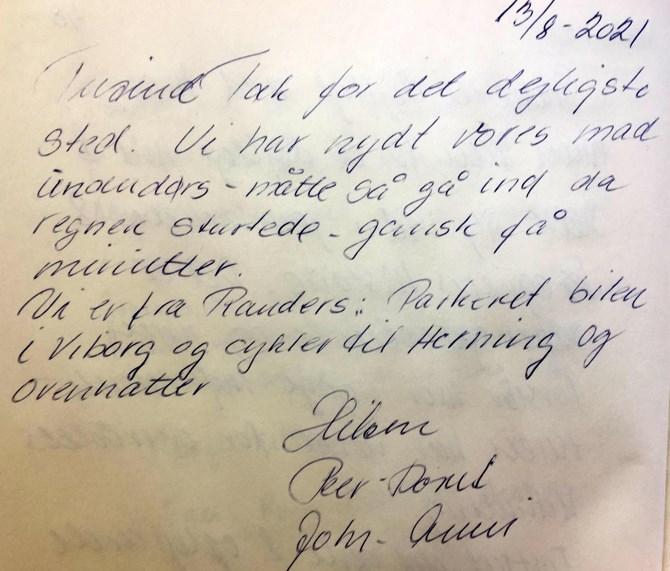 13/8-2021
Tusind Tak for det dejligste
sted. Vi har nydt vores mad
undendørs - måtte så gå ind da
regnen styrtede - gansk få
minutter.
Vi er fra Randers: Parkeret bilen
i Viborg og cykler til Herning og
overnatter
Hilsen
Peer-Dorrit
John-Anni